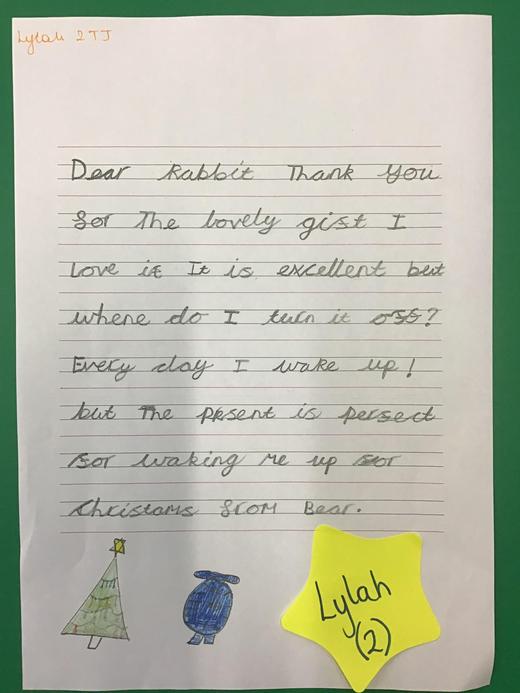 Lylah 2TJ
Dear Rabbit Thank You
for The lovely gift I
Love it It is excellent but
where do I turn it off?
Every day I wake up!
but The present is perfect
for waking me up for
Christams from Bear.
Lylah
(2)